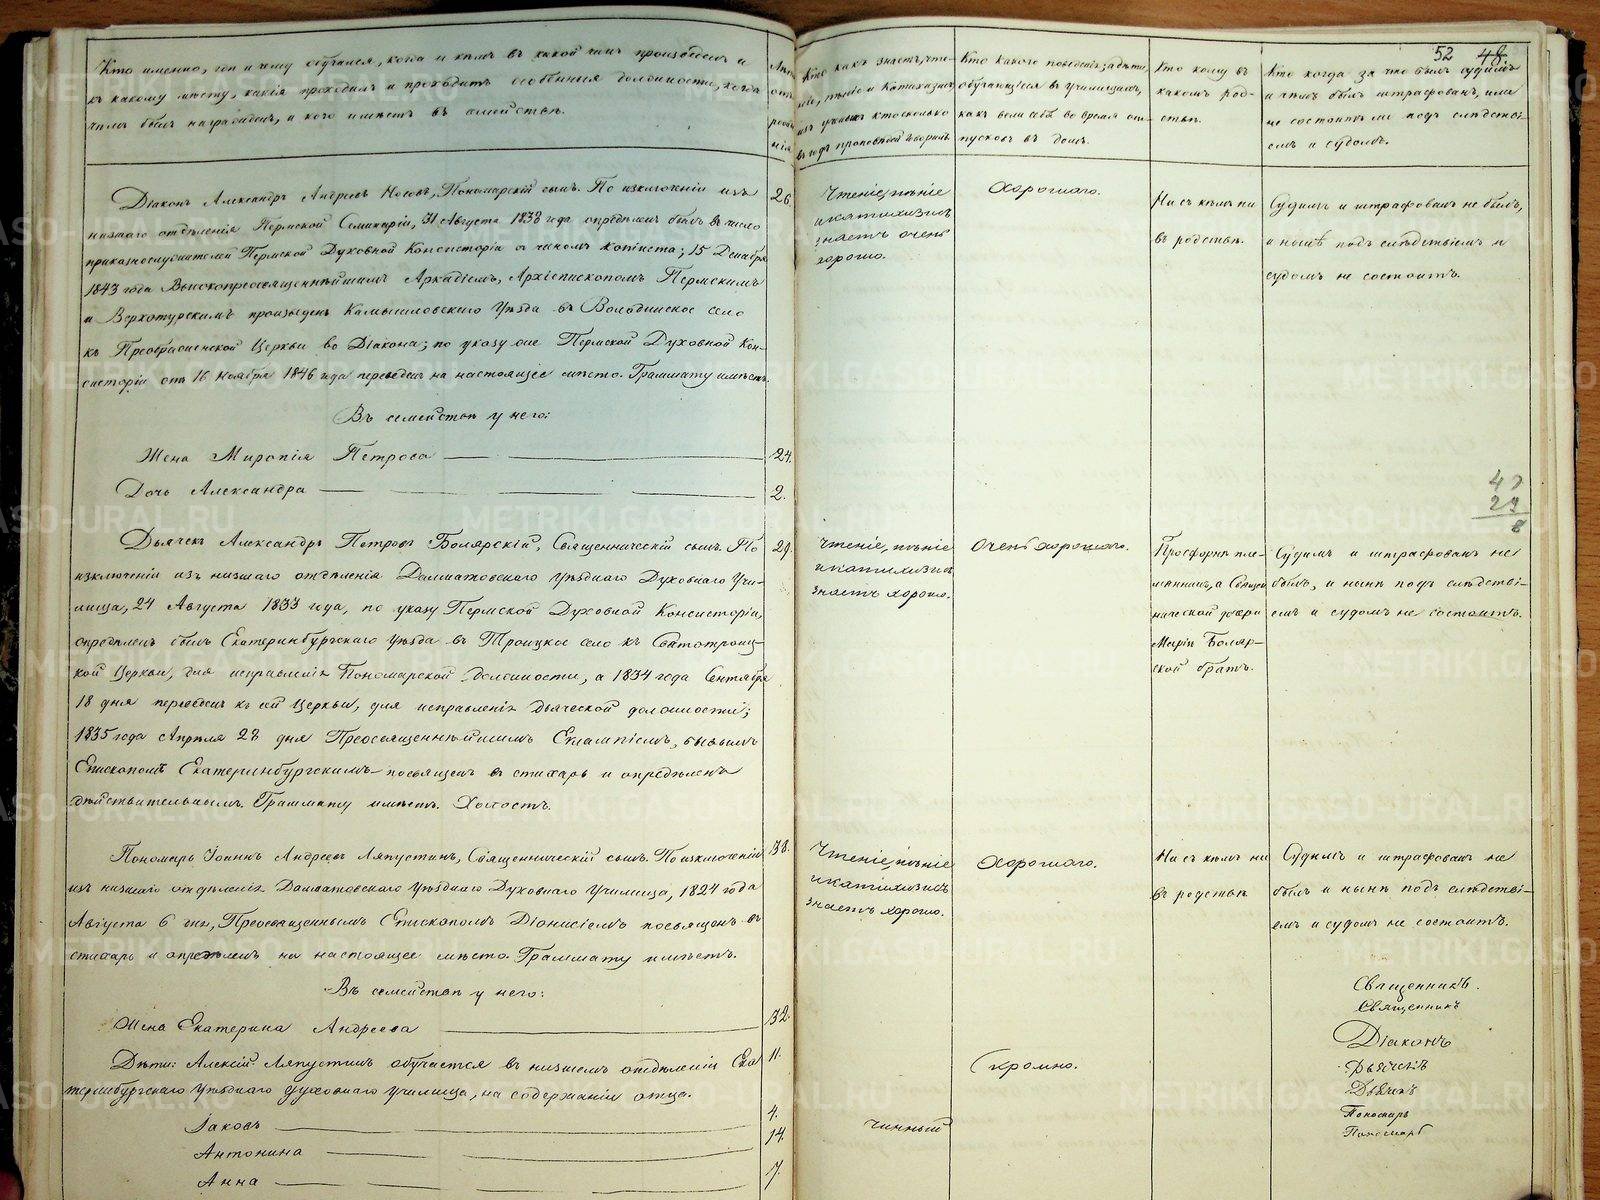 Кто именно, гдѣ и чему обучался, когда и кѣмъ въ какой чинъ произведенъ и
къ какому мѣсту, какія проходилъ и проходитъ особенныя должности, когда
чѣмъ былъ награжденъ, и кого имѣетъ въ семействѣ.
Лѣта
отъ
рожде
нія
Кто какъ знаетъ чте-
ніе, пѣніе и Катихизисъ,
изъ ученыхъ кто сколько
въ годъ проповѣдей говорилъ.
Кто какого поведенія, а дѣти,
обучающіеся въ училищахъ,
какъ вели себя во время от-
пусковъ въ домъ.
Кто кому въ
какомъ род-
ствѣ.
52 48.
Кто когда за что былъ судимъ
и чѣмъ былъ штрафованъ, или
не состоитъ ли подъ слѣдстві-
емъ и судомъ.
Діаконъ Александръ Андреевъ Носовъ, Пономарскій сынъ. По изключеніи изъ
низшаго отдѣленія Пермской Семинаріи, 31 Августа 1838 года опредѣленъ былъ въ число
приказнослужителей Пермской Духовной Консисторіи съ чиномъ копіиста; 15 Декабря
1843 года Высокопреосвященнѣйшимъ Аркадіемъ, Архіепископомъ Пермскимъ
и Верхотурскимъ произведенъ Камышловскаго Уѣзда въ Володинское село
къ Преображенской Церкви во Діакона; по указу оне Пермской Духовной Кон-
систоріи отъ 16 Ноября 1846 года переведенъ на настоящее мѣсто. Граммату имѣетъ.
26.
Чтеніе, пѣніе
и катихизисъ
знаетъ очень
хорошо.
Хорошаго.
Ни съ кѣмъ ни
въ родствѣ.
Судимъ и штрафованъ не былъ,
и нынѣ подъ слѣдствіемъ и
судомъ не состоитъ.
Въ семействѣ у него:
Жена Миропія Петрова 24.
Дочь Александра 2.
47
27
8
Дьячекъ Александръ Петровъ Боярскій, Священническій сынъ. По
изключеніи изъ низшаго отдѣленія Далматовскаго Уѣзднаго Духовнаго Учи-
лища, 24 Августа 1833 года, по указу Пермской Духовной Консисторіи,
опредѣленъ былъ Екатеринбургскаго Уѣзда въ Троицкое село къ Святотроиц-
кой Церкви, для исправленія Пономарской должности, а 1834 года Сентября
18 дня переведенъ къ сей Церкви, для исправленія дьяческой должности;
1835 года Апрѣля 28 дня Преосвященнѣйшимъ Евлампіемъ, бывшимъ
Епископомъ Екатеринбургскимъ посвященъ въ стихарь и опредѣленъ
дѣйствительнымъ. Граммату имѣетъ. Холостъ.
29.
Чтеніе, пѣніе
и катихизисъ
знаетъ хорошо.
Очень хорошаго.
Просфорнѣ пле-
мянникъ, а Священ
нической дочери
Маріи Бояр-
ской братъ.
Судимъ и штрафованъ не
былъ, и нынѣ подъ слѣдстві-
емъ и судомъ не состоитъ.
Пономарь Іоаннъ Андреевъ Ляпустинъ, Священническій сынъ. По изключеніи
изъ низшаго отдѣленія Далматовскаго Уѣзднаго Духовнаго Училища, 1824 года
Августа 6 дня, Преосвященнымъ Епископомъ Діонисіемъ посвященъ въ
стихарь и опредѣленъ на настоящее мѣсто. Граммату имѣетъ.
38.
Чтеніе, пѣніе
и катихизисъ
знаетъ хорошо.
Хорошаго.
Ни съ кѣмъ ни
въ родствѣ
Судимъ и штрафованъ не
былъ и нынѣ подъ слѣдстві-
емъ и судомъ не состоитъ.
Въ семействѣ у него:
Жена Екатерина Андреева 32.
Дѣти: Алексій Ляпустинъ обучается въ низшемъ отдѣленіи Ека 11.
теринбургскаго Уѣзднаго Духовнаго училища, на содержаніи отца.
Скромно.
Іаковъ 4.
Антонина 14.
Анна 7.
чинный
Священникъ.
Священникъ
Діаконъ
Дьячекъ
Дьячекъ
Пономарь
Пономарь
METRIKI.GASO-URAL.RU